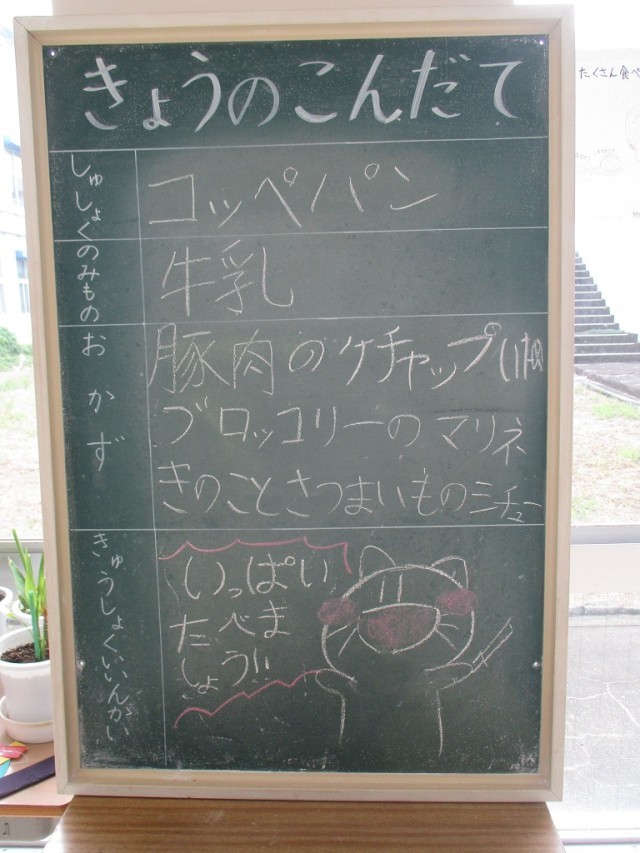 きょうのこんだて
しゅしょく
コッペパン
のみもの
牛乳
おかず
豚肉のケチャップいため
ブロッコリーのマリネ
きのことさつまいものシチュー
きゅうしょくいいんかい
いっぱい
たべま
しょう!!
たくさん食べ